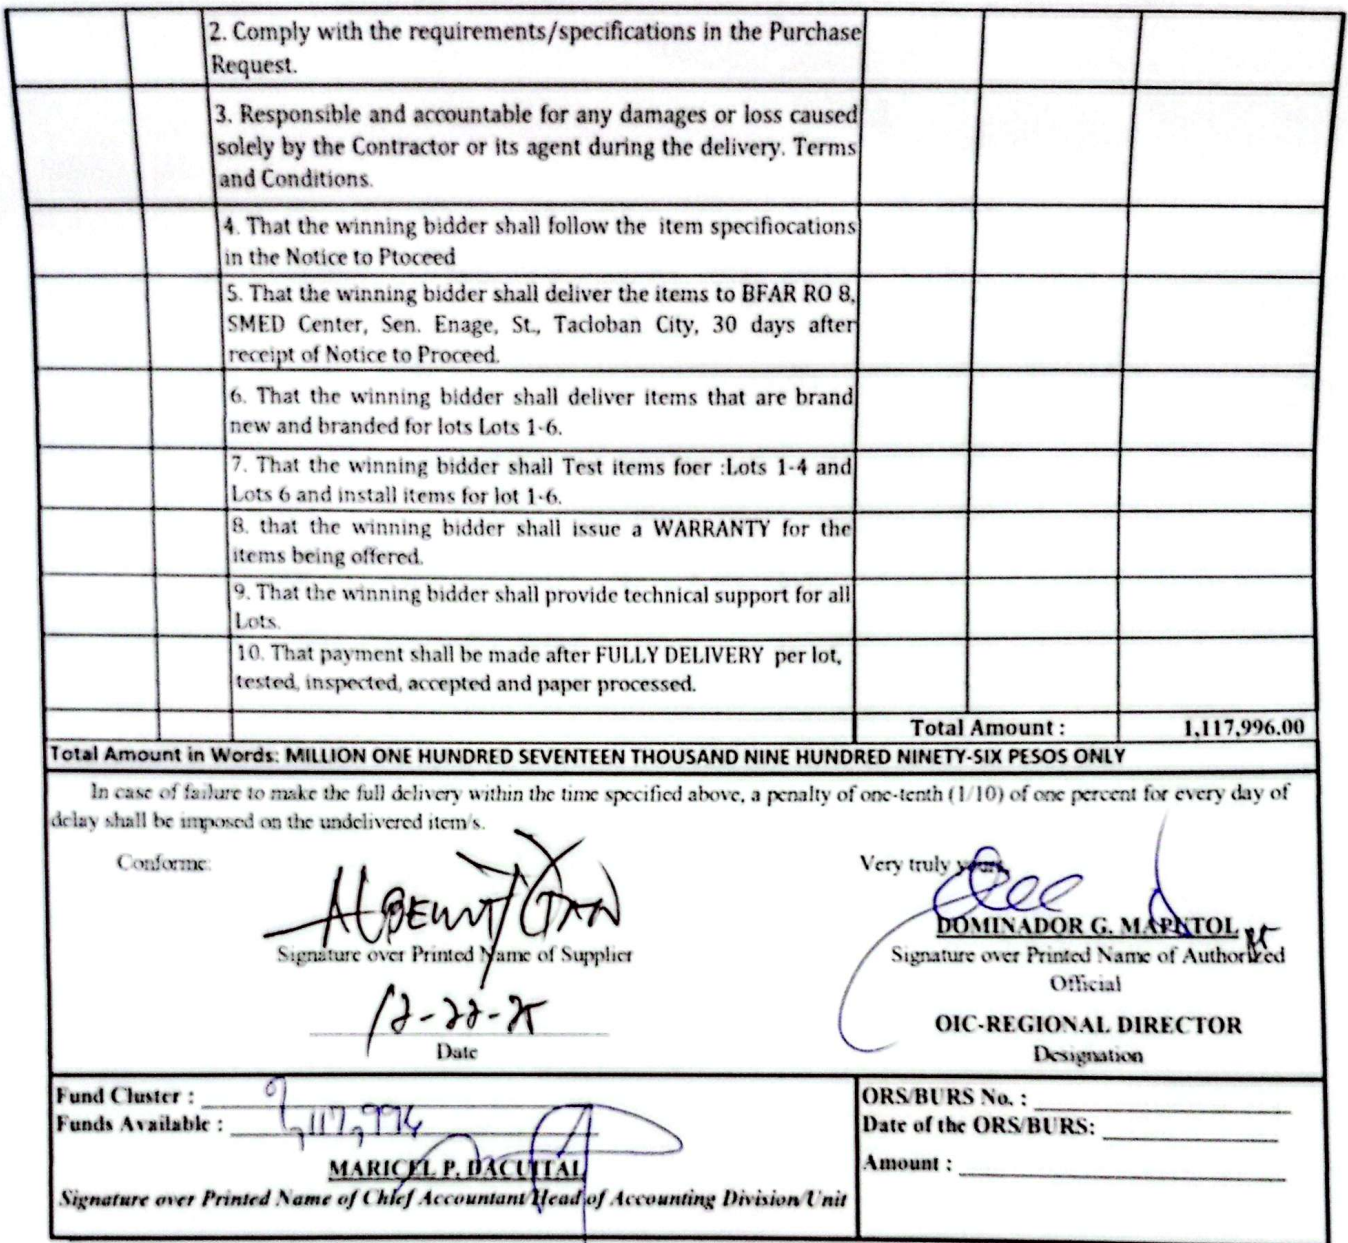 2. Comply with the requirements/specifications in the Purchase
Request.
3. Responsible and accountable for any damages or loss caused
solely by the Contractor or its agent during the delivery. Terms
and Conditions.
4. That the winning bidder shall follow the item specifiocations
in the Notice to Ptoceed
5. That the winning bidder shall deliver the items to BFAR RO 8,
SMED Center, Sen. Enage, St., Tacloban City, 30 days after
receipt of Notice to Proceed.
6. That the winning bidder shall deliver items that are brand
new and branded for lots Lots 1-6.
7. That the winning bidder shall Test items foer :Lots 1-4 and
Lots 6 and install items for lot 1-6.
8. that the winning bidder shall issue a WARRANTY for the
items being offered.
9. That the winning bidder shall provide technical support for all
Lots.
10. That payment shall be made after FULLY DELIVERY per lot,
tested, inspected, accepted and paper processed.
Total Amount : 1,117,996.00
Total Amount in Words: MILLION ONE HUNDRED SEVENTEEN THOUSAND NINE HUNDRED NINETY-SIX PESOS ONLY
In case of failure to make the full delivery within the time specified above, a penalty of one-tenth (1/10) of one percent for every day of
delay shall be imposed on the undelivered item/s.
Conforme: Very truly yours,
DOMINADOR G. MAPUTOL
Signature over Printed Name of Supplier Signature over Printed Name of Authorized
Official
12-22-25
OIC-REGIONAL DIRECTOR
Date Designation
Fund Cluster : ORS/BURS No. :
Funds Available : 1,117,996 Date of the ORS/BURS:
MARICEL P. DACUITAL Amount :
Signature over Printed Name of Chief Accountant/Head of Accounting Division/Unit